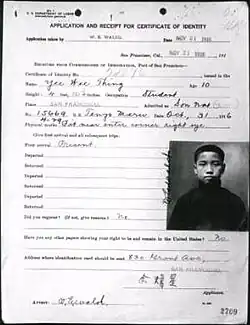 U. S. DEPARTMENT OF LABOR
APPLICATION AND RECEIPT FOR CERTIFICATE OF IDENTITY
Application taken by W. E. WALSH. Date NOV 21 1916
San Francisco, Cal., NOV 21 1916
COMMISSIONER OF IMMIGRATION, Port of San Francisco:
Certificate of Identity No. issued in the
Name of Yee Age 10
Height: 4 ft. in. Occupation: Student
SAN FRANCISCO Admitted as Son Nat
No. 15669 ex Tenyo Maru Oct. 31 1916
Physical marks: Cut scar outer corner right eye.
Give first arrival and all subsequent trips.
First arrival Present.
Departed Returned
Departed Returned
Departed Returned
Departed Returned
Departed Returned
Did you register? (If not, give reasons.) No.
Have you any other papers showing your right to be and remain in the United States? No
Address where identification card should be sent 830 Grant Ave,
SAN FRANCISCO
余
Applicant.
Attest:
2709